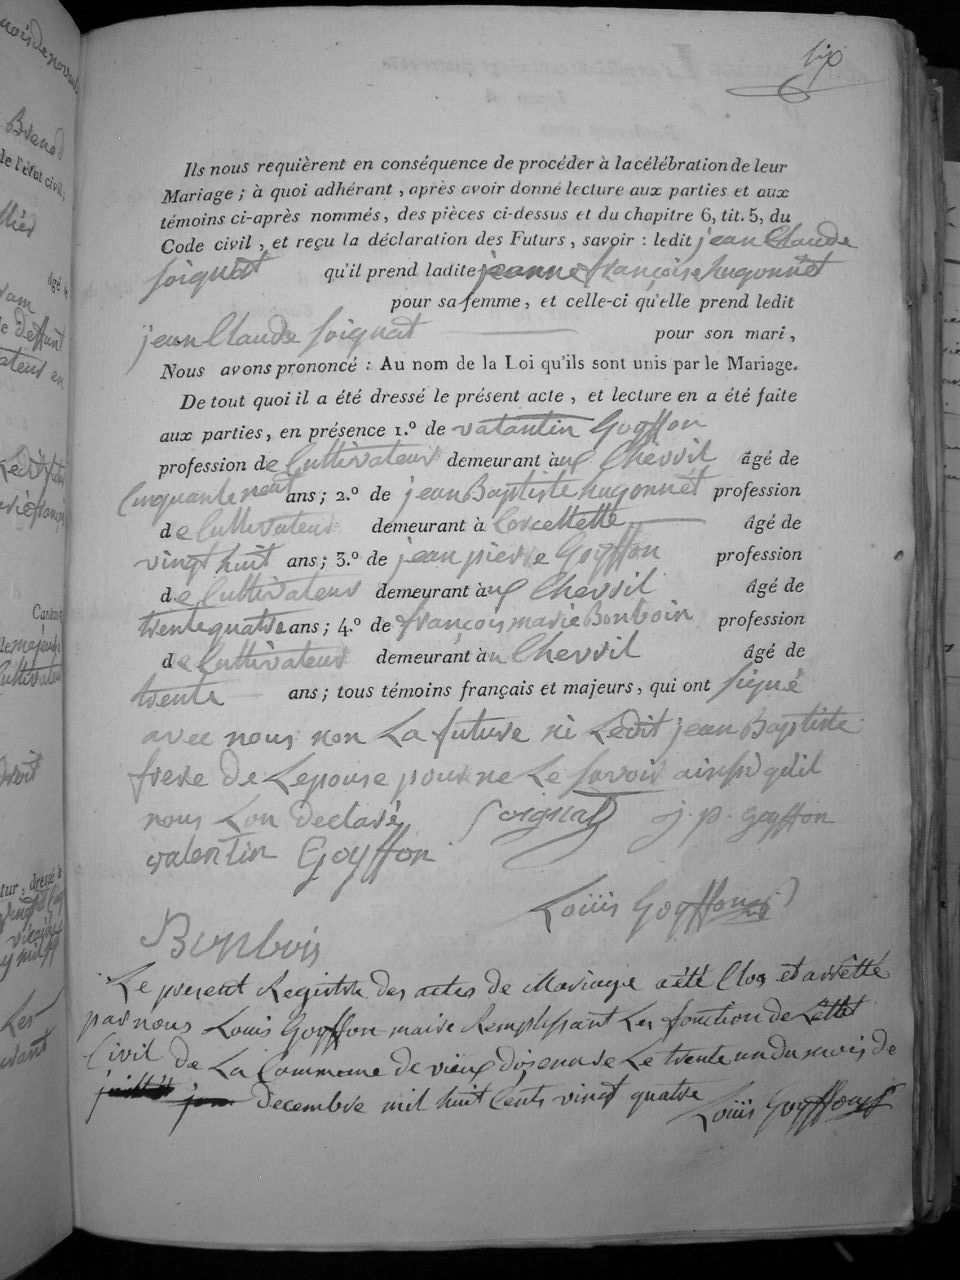 six
Ils nous requièrent en conséquence de procéder à la célébration de leur
Mariage ; à quoi adhérant , après avoir donné lecture aux parties et aux
témoins ci-après nommés, des pièces ci-dessus et du chapitre 6, tit. 5, du
Code civil , et reçu la déclaration des Futurs , savoir : ledit jean Claude
Soignat qu'il prend ladite jeanne françoise hugonnet
pour sa femme , et celle-ci qu'elle prend ledit
jean Claude Soignat pour son mari ,
Nous avons prononcé : Au nom de la Loi qu'ils sont unis par le Mariage.
De tout quoi il a été dressé le présent acte , et lecture en a été faite
aux parties, en présence 1.º de valantin Goyffon
profession de Cultivateur demeurant à Chevril âgé de
Cinquante neuf ans ; 2.º de jean Baptiste hugonnet profession
de Cultivateur demeurant à Corcellette âgé de
vingt huit ans ; 3.º de jean pierre Goyffon profession
de Cultivateur demeurant à Chevril âgé de
trente quatre ans ; 4.º de françois marie Bonboin profession
de Cultivateur demeurant à Chevril âgé de
trente ans ; tous témoins français et majeurs, qui ont signé
avec nous non La future ni Ledit jean Baptiste
frere de Lepouse pour ne Le savoir ainsi qu'il
nous Lon declaré Soignat j. p. Goyffon
valentin Goyffon
Louis Goyffon
Le present Registre des actes de Mariage a été Clos et arrêtté
par nous Louis Goyffon maire Remplissant Les fonction de Lettat
Civil de La Commune de vieux d'izenave Le trente un du mois de
Decembre mil huit Cents vingt quatre Louis Goyffon